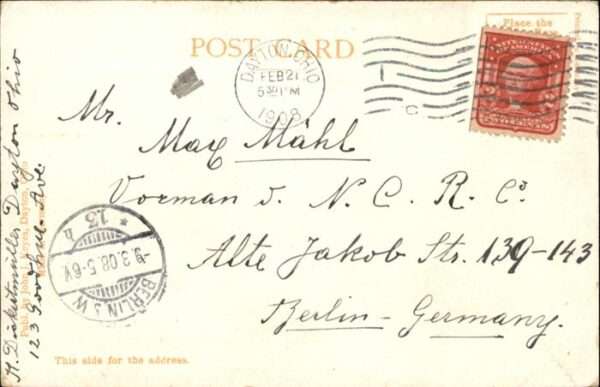 Place the
POST CARD
DAYTON, OHIO
FEB 21
5 30 PM
1908
C
Mr.
Max Mähl
Vorman v. N. C. R. Co
Alte Jakob Str. 139-143
Berlin - Germany.
BERLIN S W
9.3.08.5-6V.
* 13 h
This side for the address.
Dayton Ohio
123 Ave.